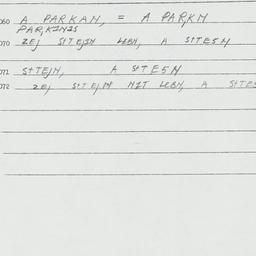 060 A PARKAN, = A PARKN
PARKINIS
070 ZEJ STTEJIN LEBN, A STTESN
071 STTEJN, A STTESN
072 ZEJ STTEJNP NIT LEBN, A STTES